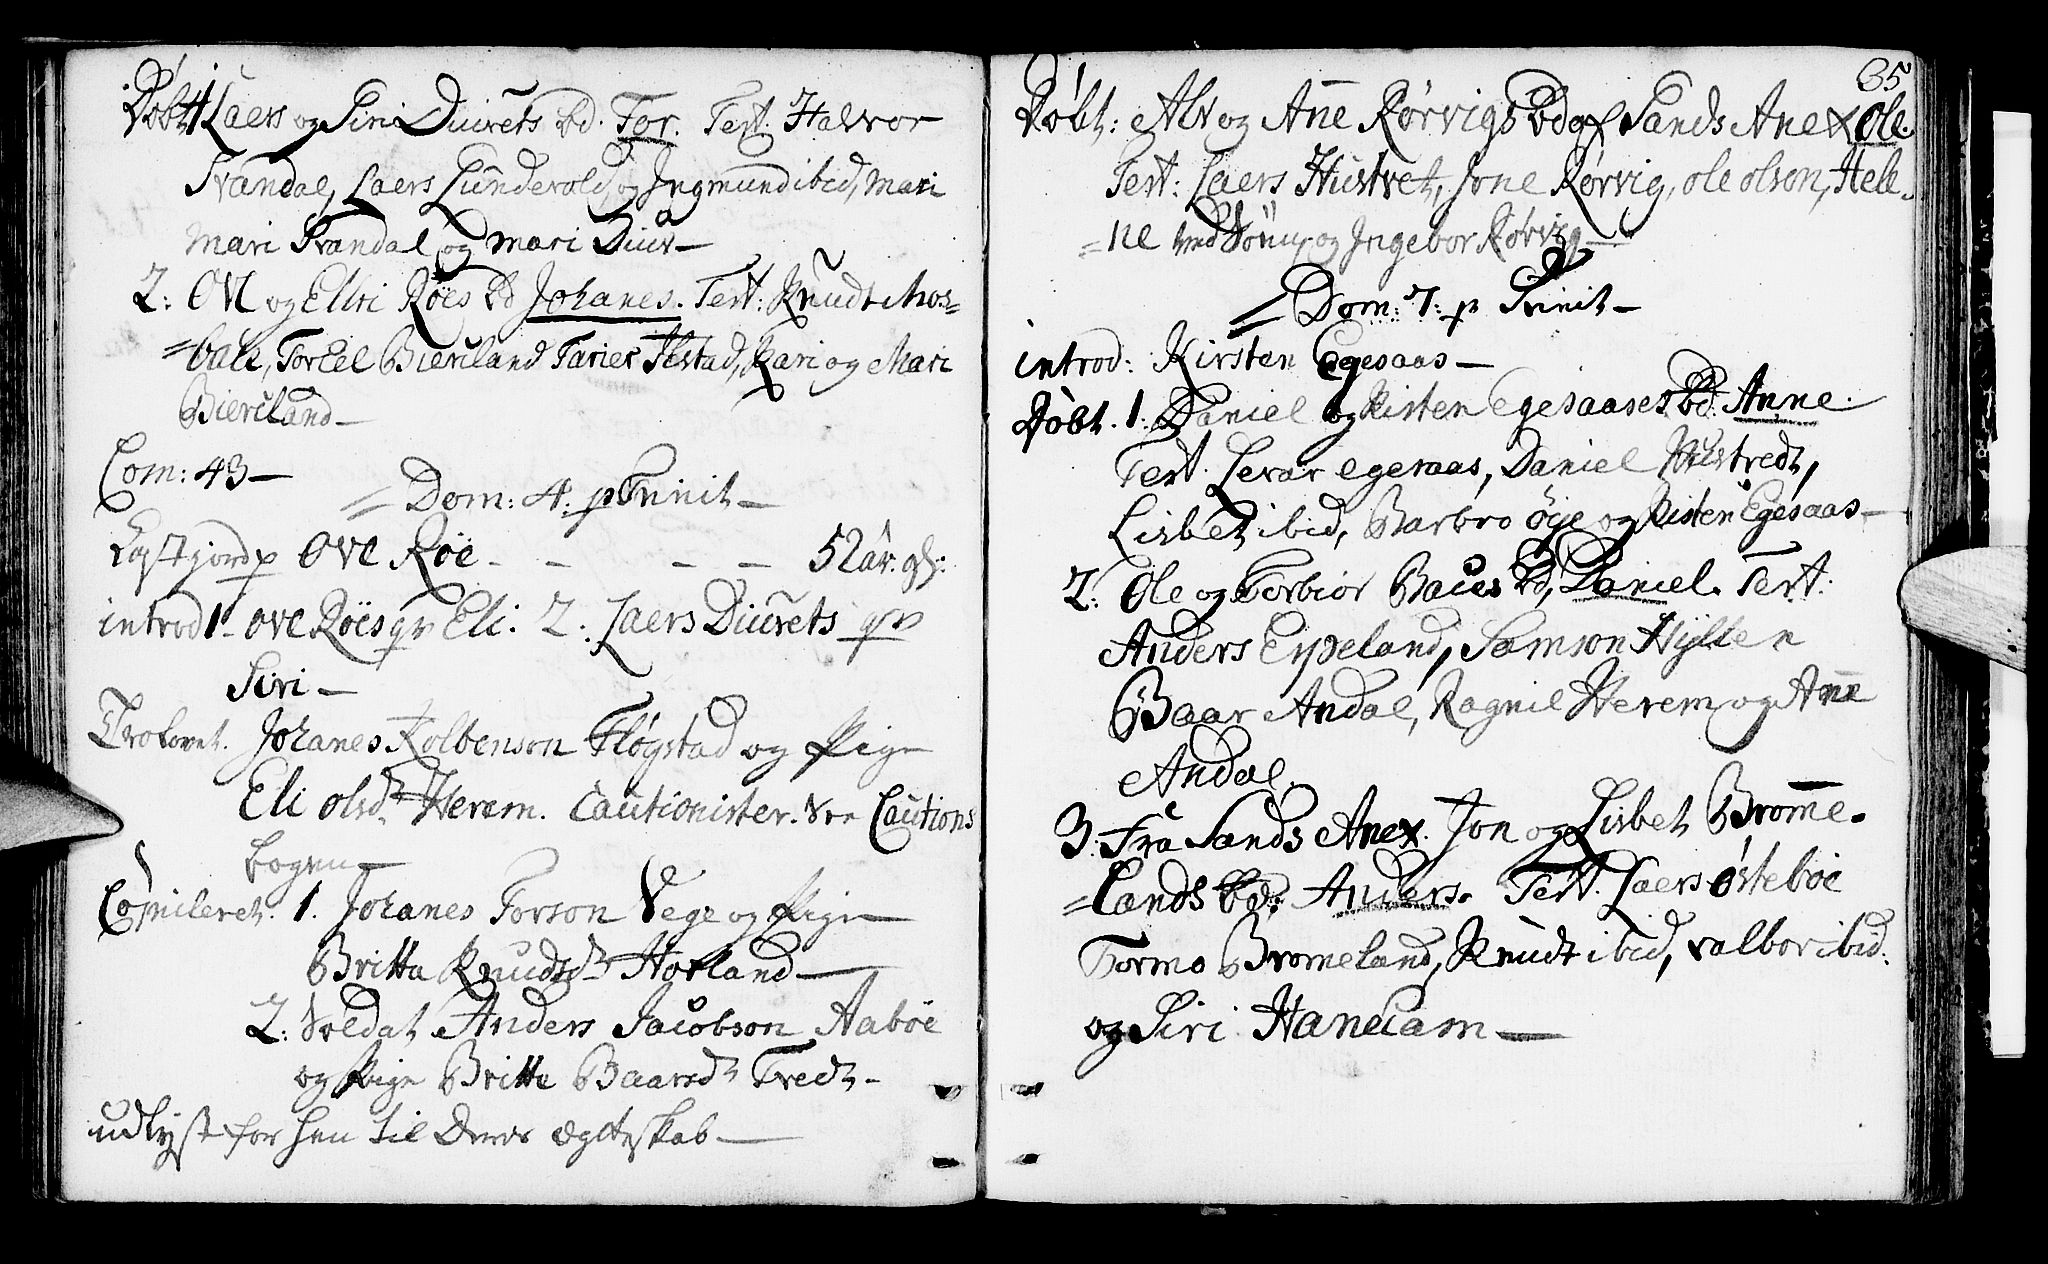 Döbt 1 Laers og Siri Diürets bd. Tor. Test. Halvor
Tvandal, Laers Lunde og Ingmund ibid, Mari
Mari Tvandal og Mari Diür
2: Ove og Elsi Röes bd Johanes. Test: Knudt Mos=
=bale, Torkel Bierland Tarier Tistad, Kari og Mari
Bierland
Com: 43
Dom: 4: p Trinit
Ove Röe - - - - 52 aar: gl:
introd 1 Ove Röes qv Eli. 2: Laers Diürets qv
Siri
Trolovet. Johanes Kolbenson Fløgstad og Pige
Eli olsdr Herem. Cautionister. vee Cautions
bogen
Copuleret. 1. Johanes Torson Vege og Pige
Britta Knudsdr Hovland
2: Soldat Anders Jacobson Aaböe
og Pige Britta Baarsdr Tredt
udlyst for hen til Deres ægteskab
35
Döbt: Alv og Ane Rörvigs bd af Sands Anex Ole.
Test: Laers Hustvet, Jone Rörvig, ole olson, Hele=
=ne og Ingebor Rörvig
Dom: 7: p Trinit
introd: Kirsten Egesaas
Döbt. 1: Daniel og Kisten Egesaases bd: Anne.
Test. Levar egesaas, Daniel
Lisbet ibid, Barbro öye og Kisten Egesaas
2: Ole og Torbior Baües bd, Daniel. Test:
Anders Erpeland, Samson Hylten
Baar Andal, Ragnil Herem og Ane
Andal.
3. Fra Sands Anex. Jon og Lisbet Brome=
=lands bd: Anders. Test. Laers östeböe
Tormo Bromeland, Knudt ibid, valbor ibid:
og Siri Hanecam